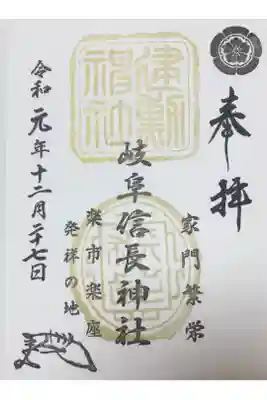 奉拝
家門繁栄
岐阜信長神社
建勲神社
楽市楽座
発祥の地
令和元年十二月二十七日